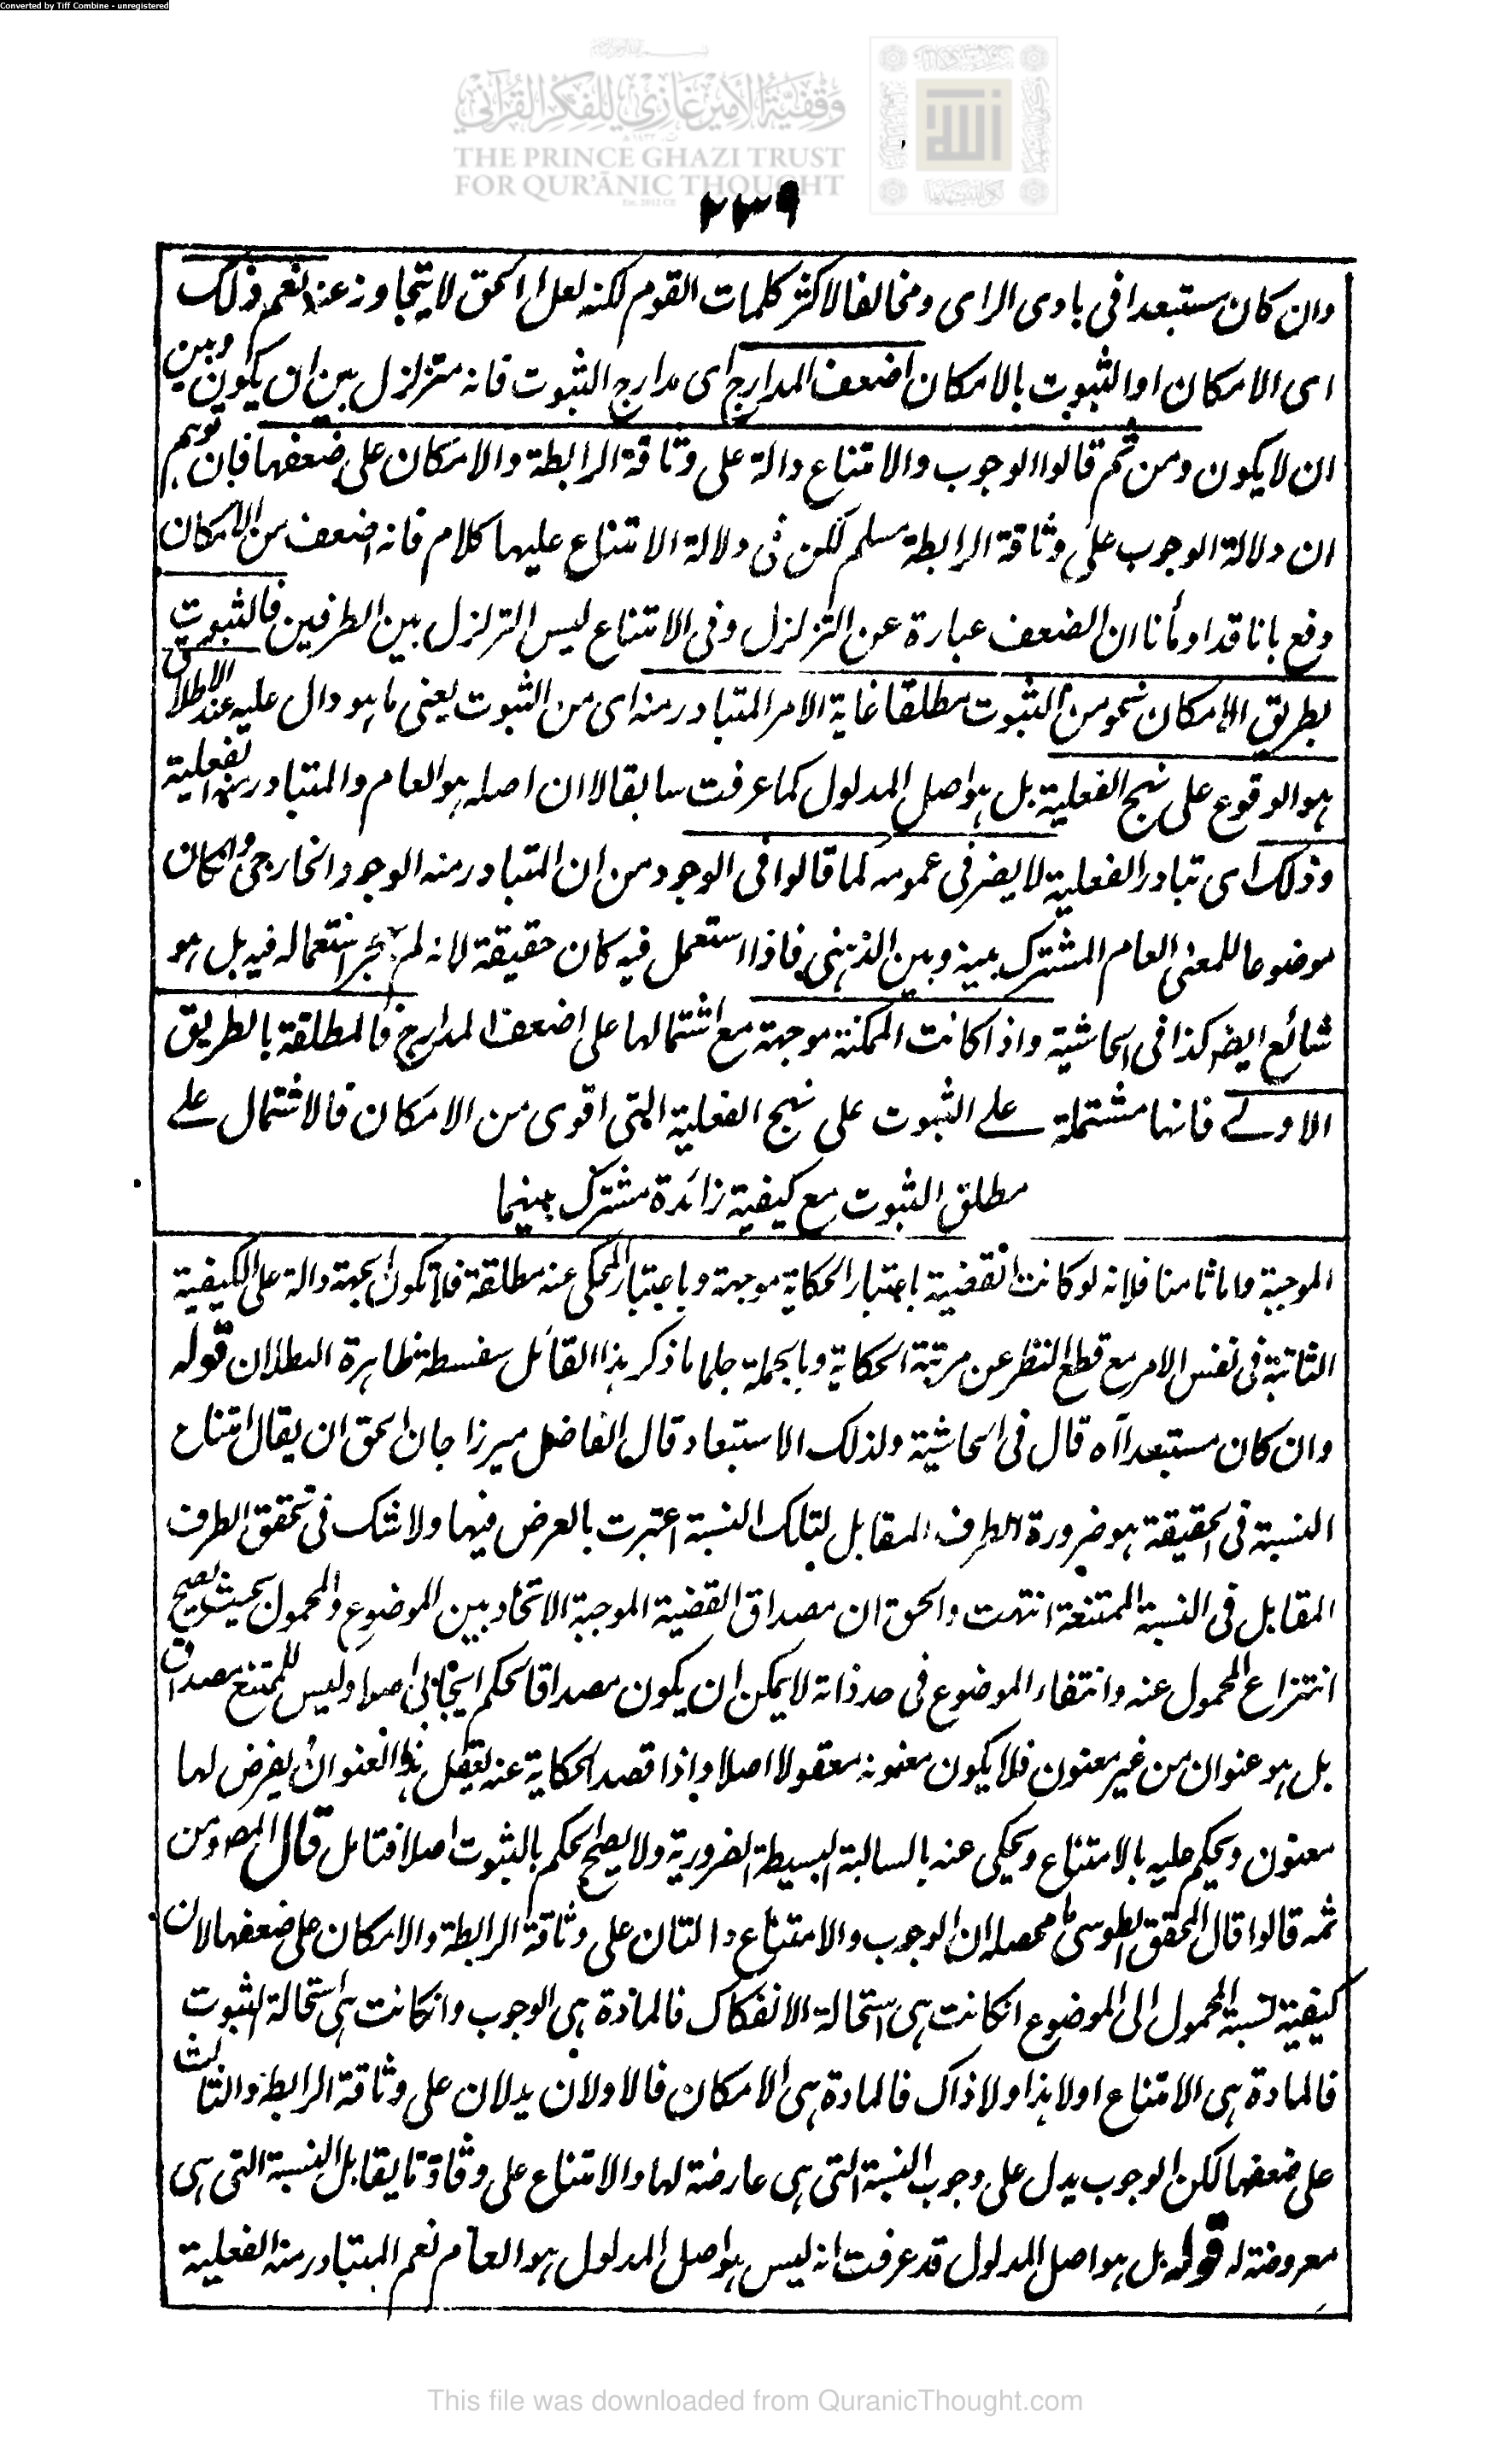 Converted by Tiff Combine - unregistered
وقفية الأمير غازي للفكر القرآني
THE PRINCE GHAZI TRUST
FOR QUR'ĀNIC THOUGHT
٢٣٩
وان كان مستبعدا فى بادى الراى ومخالفا لاكثر كلمات القوم لكنه لعل الحق لا يتجاوز عنه نعم ذلك
اى الامكان او الثبوت بالامكان اضعف المدارج اى مدارج الثبوت فانه متزلزل بين ان يكون وبين
ان لا يكون ومن ثم قالوا الوجوب والامتناع دالة على وثاقة الرابطة والامكان على ضعفها فان توهم
ان دلالة الوجوب على وثاقة الرابطة مسلم لكن فى دلالة الامتناع عليها كلام فانه اضعف من الامكان
دفع بانا قد اومأنا ان الضعف عبارة عن التزلزل وفى الامتناع ليس التزلزل بين الطرفين فالثبوت
بطريق الامكان نحو من الثبوت مطلقا غاية الامر المتبادر منه اى من الثبوت يعنى ما هو دال عليه عند الاطلاق
هو الوقوع على نهج الفعلية بل هو اصل المدلول كما عرفت سابقا لا ان اصله هو العام والمتبادر منه الفعلية
وذلك اى تبادر الفعلية لا يضر فى عمومه كما قالوا فى الوجود من ان المتبادر منه الوجود الخارجى وان كان
موضوعا للمعنى العام المشترك بينه وبين الذهنى فاذا استعمل فيه كان حقيقة لانه لم يهجر استعماله فيه بل هو
شائع ايضا كذا فى الحاشية واذا كانت الممكنة موجهة مع اشتمالها على اضعف المدارج فالمطلقة بالطريق
الاولے فانها مشتملة علے الثبوت على نهج الفعلية التى اقوى من الامكان فالاشتمال علے
مطلق الثبوت مع كيفية زائدة مشترك بينهما
الموجبة واما ثامنا فلانه لو كانت القضية باعتبار الحكاية موجهة وباعتبار المحكى عنه مطلقة فلا تكون الجهة دالة على الكيفية
الثابتة فى نفس الامر مع قطع النظر عن مرتبة الحكاية وبالجملة جل ما ذكر هذا القائل سفسطة ظاهرة البطلان قوله
وان كان مستبعدا آه قال فى الحاشية ولذلك الاستبعاد قال الفاضل ميرزا جان الحق ان يقال امتناع
النسبة فى الحقيقة هو ضرورة الطرف المقابل لتلك النسبة اعتبرت بالعرض فيها ولا شك فى تحقق الطرف
المقابل فى النسبة الممتنعة انتهت والحق ان مصداق القضية الموجبة الاتحاد بين الموضوع والمحمول بحيث يصح
انتزاع المحمول عنه وانتفاء الموضوع فى حد ذاته لا يمكن ان يكون مصداقا لحكم ايجابى اصلا وليس للممتنع مصداق
بل هو عنوان من غير معنون فلا يكون معنونه معقولا اصلا واذا قصد الحكاية عنه يعقل هذا العنوان يفرض لها
معنون ويحكم عليه بالامتناع ويحكى عنه بالسالبة البسيطة الضرورية ولا يصح الحكم بالثبوت اصلا فتامل قال المصـ ومن
ثمه قالوا قال المحقق الطوسى ما محصله ان الوجوب والامتناع دالتان على وثاقة الرابطة والامكان على ضعفها لان
كيفية نسبة المحمول الى الموضوع ان كانت هى استحالة الانفكاك فالمادة هى الوجوب وان كانت هى استحالة الثبوت
فالمادة هى الامتناع اولا هذا ولا ذاك فالمادة هى الامكان فالاولان يدلان على وثاقة الرابطة والثالث
على ضعفها لكن الوجوب يدل على وجوب النسبة التى هى عارضة لها والامتناع على وثاقة ما يقابل النسبة التى هى
معروضة له قوله بل هو اصل المدلول قد عرفت انه ليس هو اصل المدلول هو العام نعم المتبادر منه الفعلية
This file was downloaded from QuranicThought.com